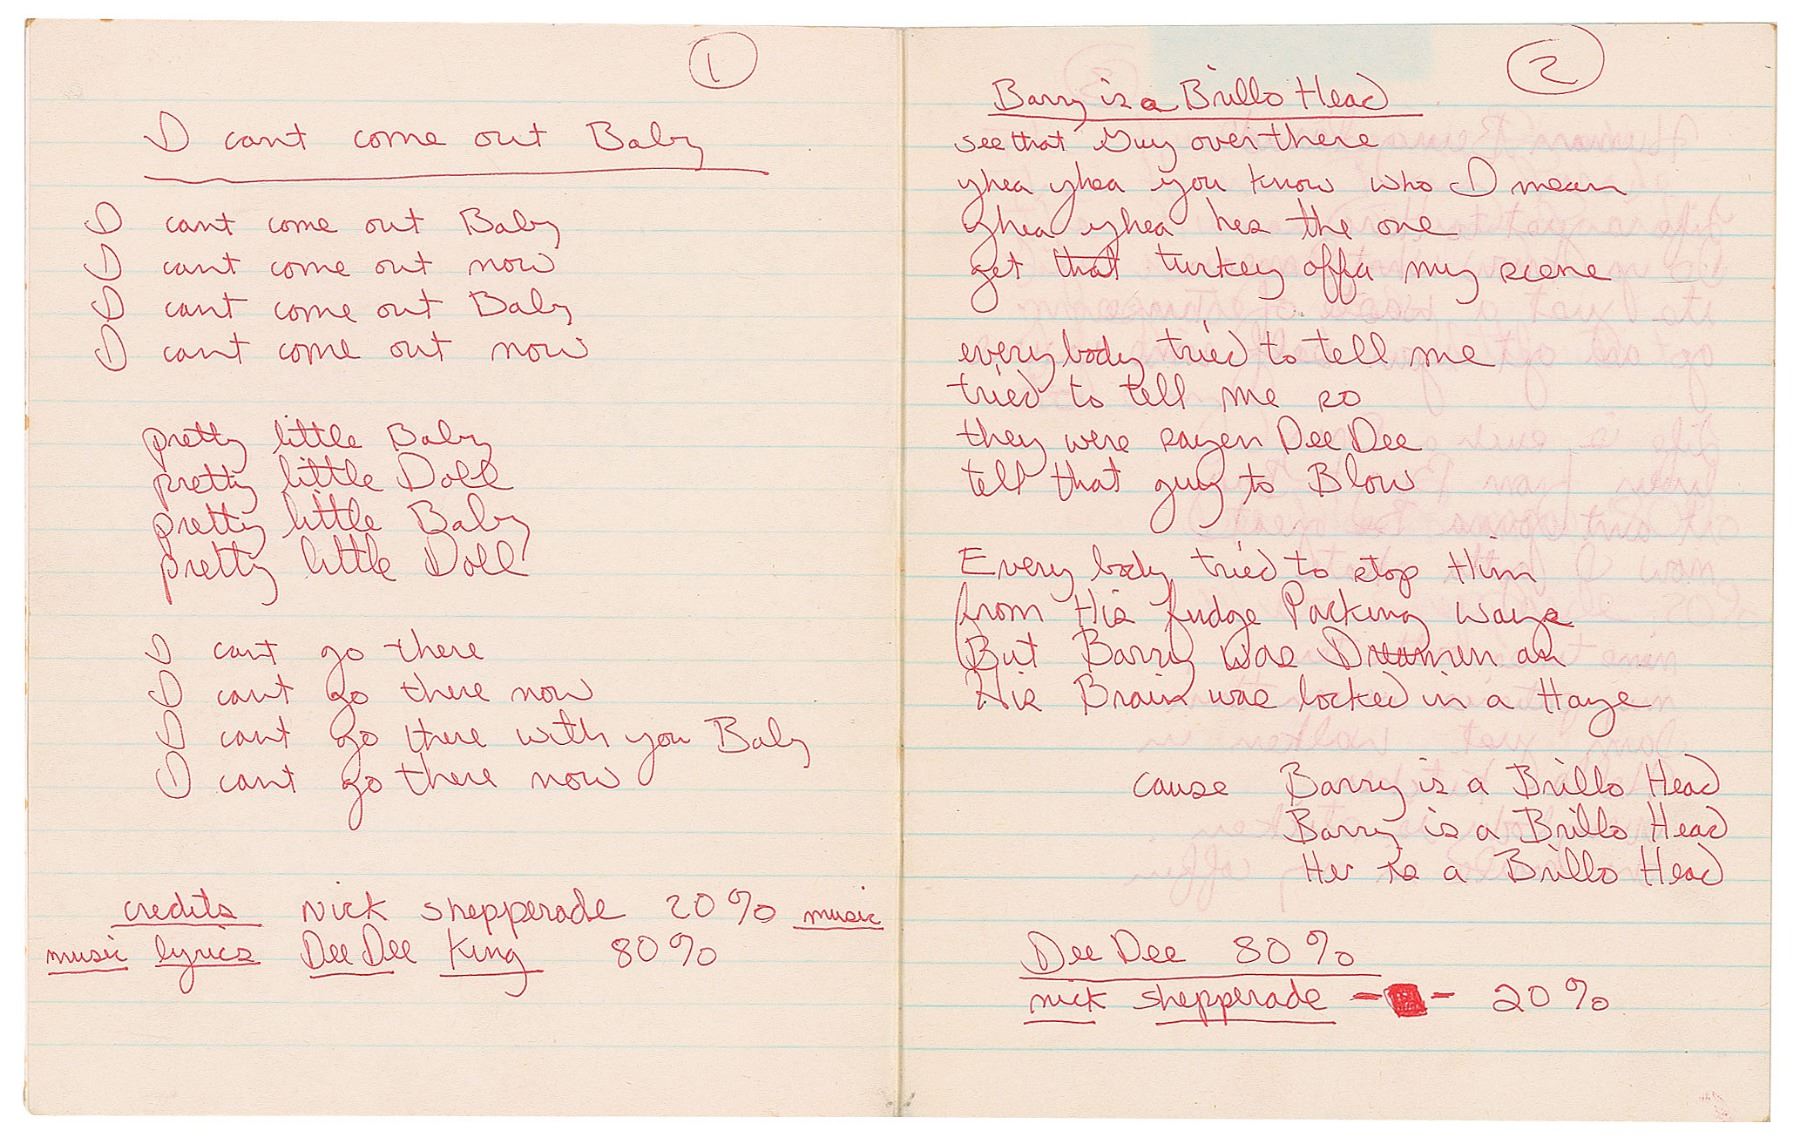 1
I cant come out Baby
I cant come out Baby
I cant come out now
I cant come out Baby
I cant come out now
pretty little Baby
pretty little Doll
pretty little Baby
pretty little Doll
I cant go there
I cant go there now
I cant go there with you Baby
I cant go there now
credits Nick shepperade 20% music
music lyrics Dee Dee King 80%
2
Barry is a Brillo Head
see that Guy over there
yhea yhea you know who I mean
yhea yhea hes the one
get that turkey offa my scene
every body tried to tell me
tried to tell me so
they were sayen Dee Dee
tell that guy to Blow
Every body tried to stop Him
from His fudge Packing ways
But Barry was Dreamen an
His Brain was locked in a Haze
cause Barry is a Brillo Head
Barry is a Brillo Head
is a Brillo Head
Dee Dee 80%
nick shepperade - - 20%